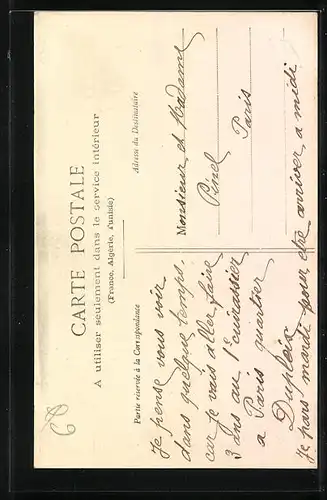 CARTE POSTALE
A utiliser seulement dans le service intérieur
(France, Algérie, Tunisie)
Partie réservée à la Correspondance
Adresse du Destinataire
Je pense vous voir
dans quelque temps.
car je vais aller faire
3 ans au 1er cuirassier
a Paris quartier
Dupleix
je pars mardi pour etre arriver a midi
Monsieur et Madame
Pinel
Paris